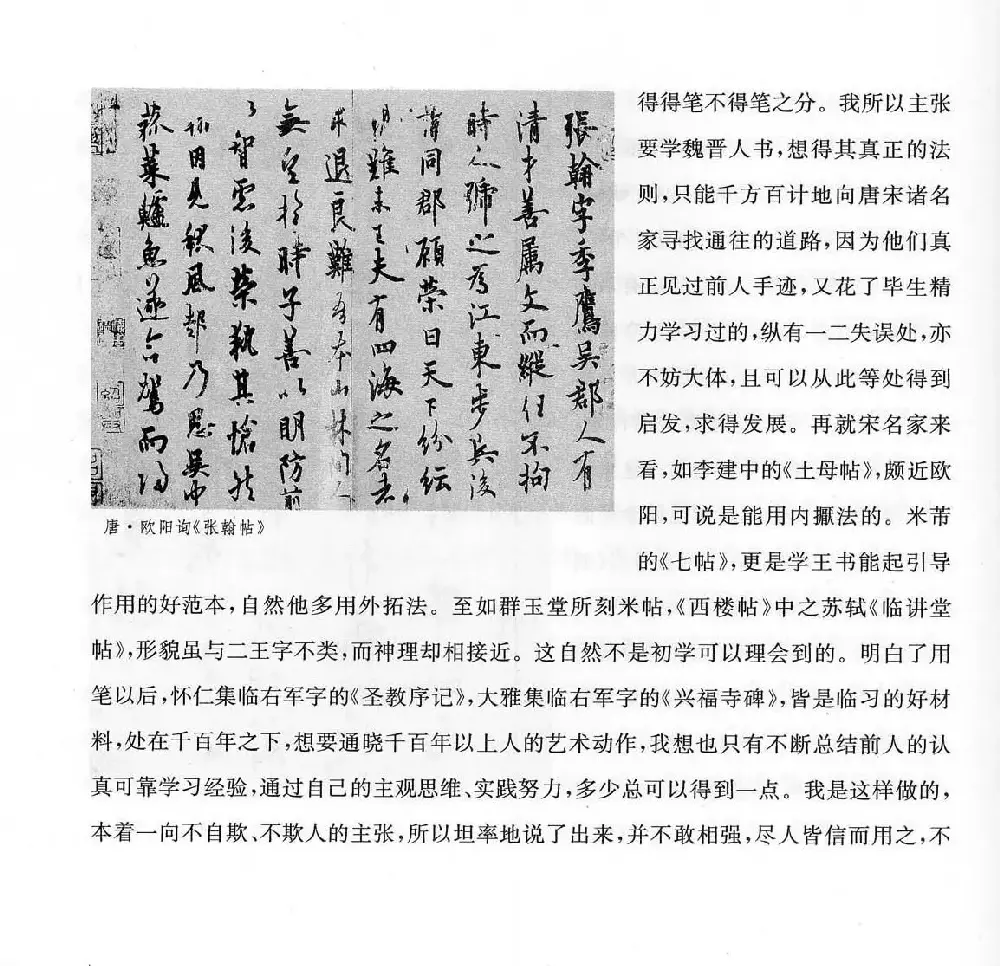 張翰字季鷹吳郡人有
清才善属文而縱任不拘
時人號之為江東步兵後
謂同郡顧榮曰天下紛紜
禍難未已夫有四海之名者
求退良難吾本山林間人
無望於時子善以明防前
以智慮後榮執其愴然
翰因見秋風起乃思吳中
菰菜鱸魚遂命駕而歸
唐·欧阳询《张翰帖》
得得笔不得笔之分。我所以主张
要学魏晋人书,想得其真正的法
则,只能千方百计地向唐宋诸名
家寻找通往的道路,因为他们真
正见过前人手迹,又花了毕生精
力学习过的,纵有一二失误处,亦
不妨大体,且可以从此等处得到
启发,求得发展。再就宋名家来
看,如李建中的《土母帖》,颇近欧
阳,可说是能用内擫法的。米芾
的《七帖》,更是学王书能起引导
作用的好范本,自然他多用外拓法。至如群玉堂所刻米帖,《西楼帖》中之苏轼《临讲堂
帖》,形貌虽与二王字不类,而神理却相接近。这自然不是初学可以理会到的。明白了用
笔以后,怀仁集临右军字的《圣教序记》,大雅集临右军字的《兴福寺碑》,皆是临习的好材
料,处在千百年之下,想要通晓千百年以上人的艺术动作,我想也只有不断总结前人的认
真可靠学习经验,通过自己的主观思维、实践努力,多少总可以得到一点。我是这样做的,
本着一向不自欺、不欺人的主张,所以坦率地说了出来,并不敢相强,尽人皆信而用之,不